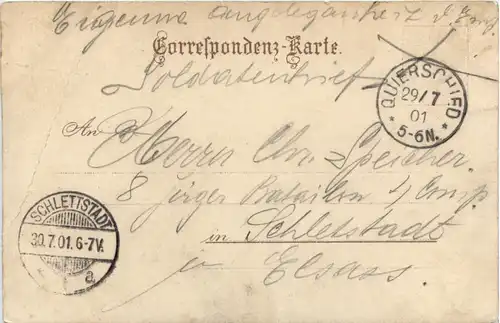 Eigenne Angelegenheit d. Empf.
Correspondenz-Karte.
Soldatenbrief
An
Herrn Chr. Speicher
8 jäger Batailon 4 Comp.
in Schletstadt
Elsass.
QUIERSCHIED
29/7
01
* 5-6N. *
SCHLETTSTADT
30.7.01.6-7V.
a